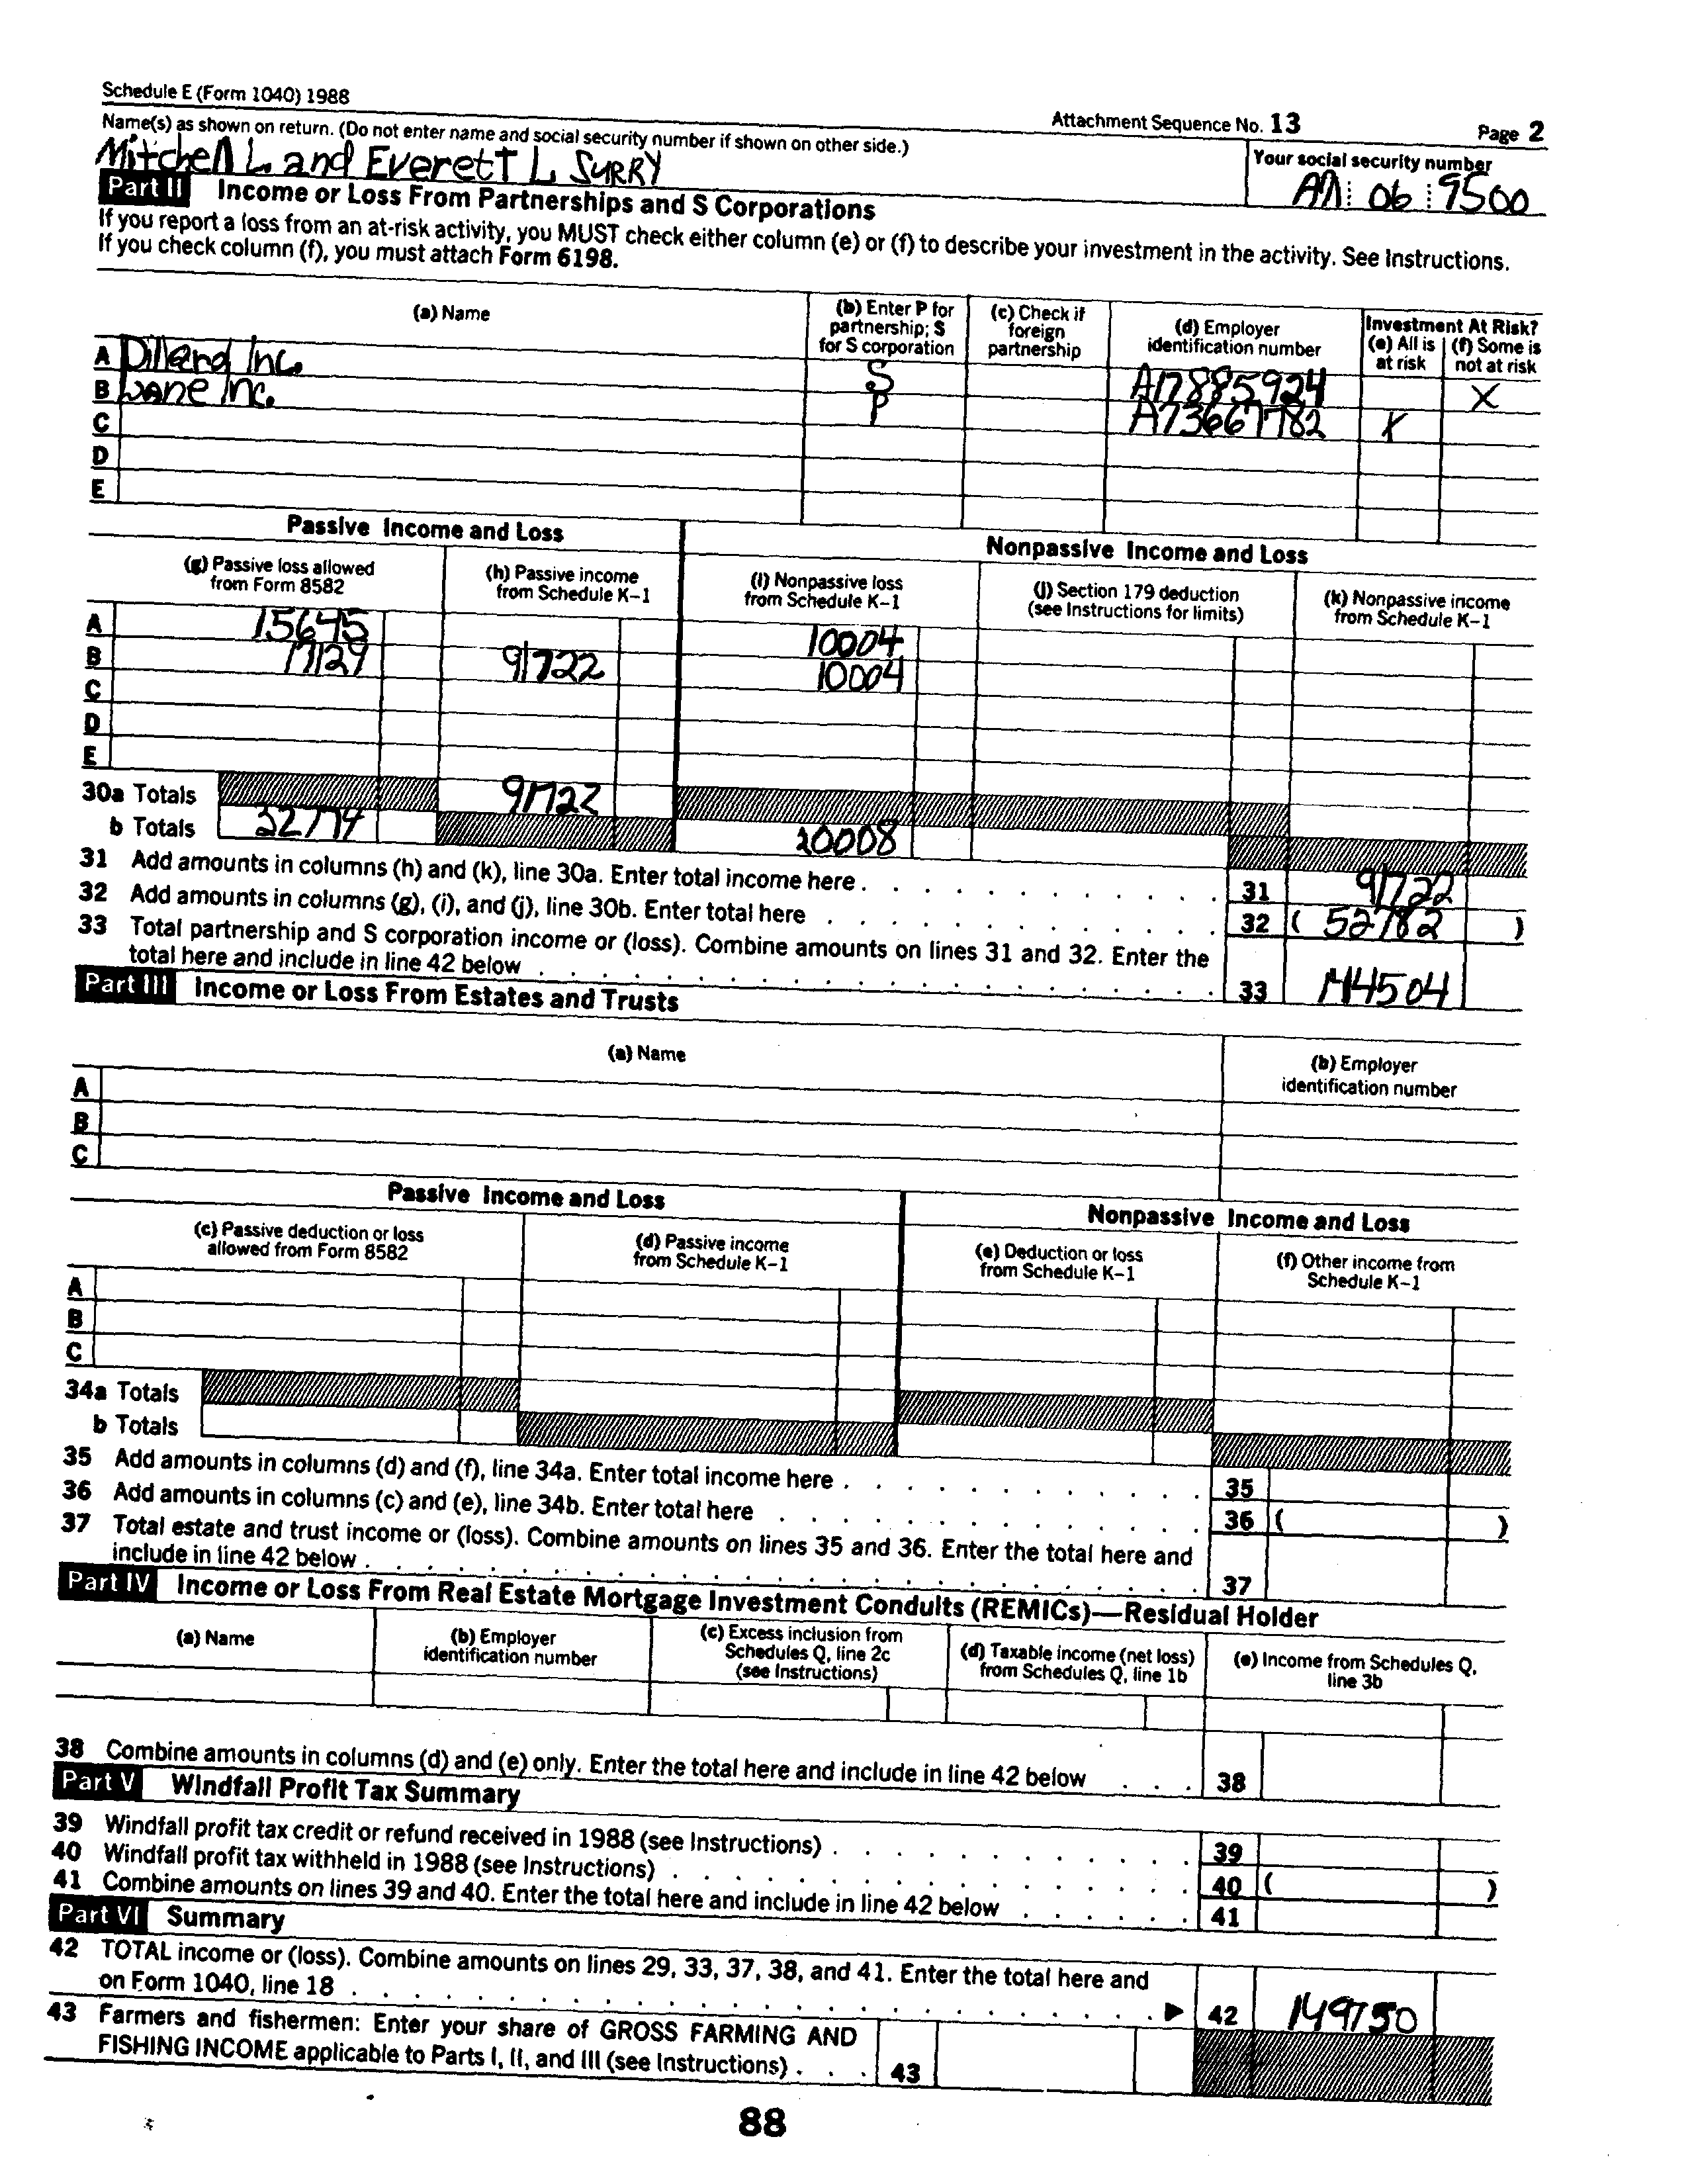 Schedule E (Form 1040) 1988
Attachment Sequence No. 13
Page 2
Name(s) as shown on return. (Do not enter name and social security number if shown on other side.)
Your social security number
Mitchell L and Everett L SURRY
06 9500
Part II Income or Loss From Partnerships and S Corporations
If you report a loss from an at-risk activity, you MUST check either column (e) or (f) to describe your investment in the activity. See Instructions.
If you check column (f), you must attach Form 6198.
(a) Name
(b) Enter P for partnership; S for S corporation
(c) Check if foreign partnership
(d) Employer identification number
Investment At Risk?
(e) All is at risk
(f) Some is not at risk
A Dillard Inc. S A17885924 X
B Lane Inc. P A73667782 X
C
D
E
Passive Income and Loss
Nonpassive Income and Loss
(g) Passive loss allowed from Form 8582
(h) Passive income from Schedule K-1
(i) Nonpassive loss from Schedule K-1
(j) Section 179 deduction (see Instructions for limits)
(k) Nonpassive income from Schedule K-1
A 15645 10004
B 17129 91722 10004
C
D
E
30a Totals 91722
b Totals 32774 20008
31 Add amounts in columns (h) and (k), line 30a. Enter total income here 31 91722
32 Add amounts in columns (g), (i), and (j), line 30b. Enter total here 32 ( 52782 )
33 Total partnership and S corporation income or (loss). Combine amounts on lines 31 and 32. Enter the
total here and include in line 42 below 33 144504
Part III Income or Loss From Estates and Trusts
(a) Name
(b) Employer identification number
A
B
C
Passive Income and Loss
Nonpassive Income and Loss
(c) Passive deduction or loss allowed from Form 8582
(d) Passive income from Schedule K-1
(e) Deduction or loss from Schedule K-1
(f) Other income from Schedule K-1
A
B
C
34a Totals
b Totals
35 Add amounts in columns (d) and (f), line 34a. Enter total income here 35
36 Add amounts in columns (c) and (e), line 34b. Enter total here 36 ( )
37 Total estate and trust income or (loss). Combine amounts on lines 35 and 36. Enter the total here and
include in line 42 below 37
Part IV Income or Loss From Real Estate Mortgage Investment Conduits (REMICs)—Residual Holder
(a) Name
(b) Employer identification number
(c) Excess inclusion from Schedules Q, line 2c (see Instructions)
(d) Taxable income (net loss) from Schedules Q, line 1b
(e) Income from Schedules Q, line 3b
38 Combine amounts in columns (d) and (e) only. Enter the total here and include in line 42 below 38
Part V Windfall Profit Tax Summary
39 Windfall profit tax credit or refund received in 1988 (see Instructions) 39
40 Windfall profit tax withheld in 1988 (see Instructions) 40 ( )
41 Combine amounts on lines 39 and 40. Enter the total here and include in line 42 below 41
Part VI Summary
42 TOTAL income or (loss). Combine amounts on lines 29, 33, 37, 38, and 41. Enter the total here and
on Form 1040, line 18 ▶ 42 149750
43 Farmers and fishermen: Enter your share of GROSS FARMING AND
FISHING INCOME applicable to Parts I, II, and III (see Instructions) 43
88